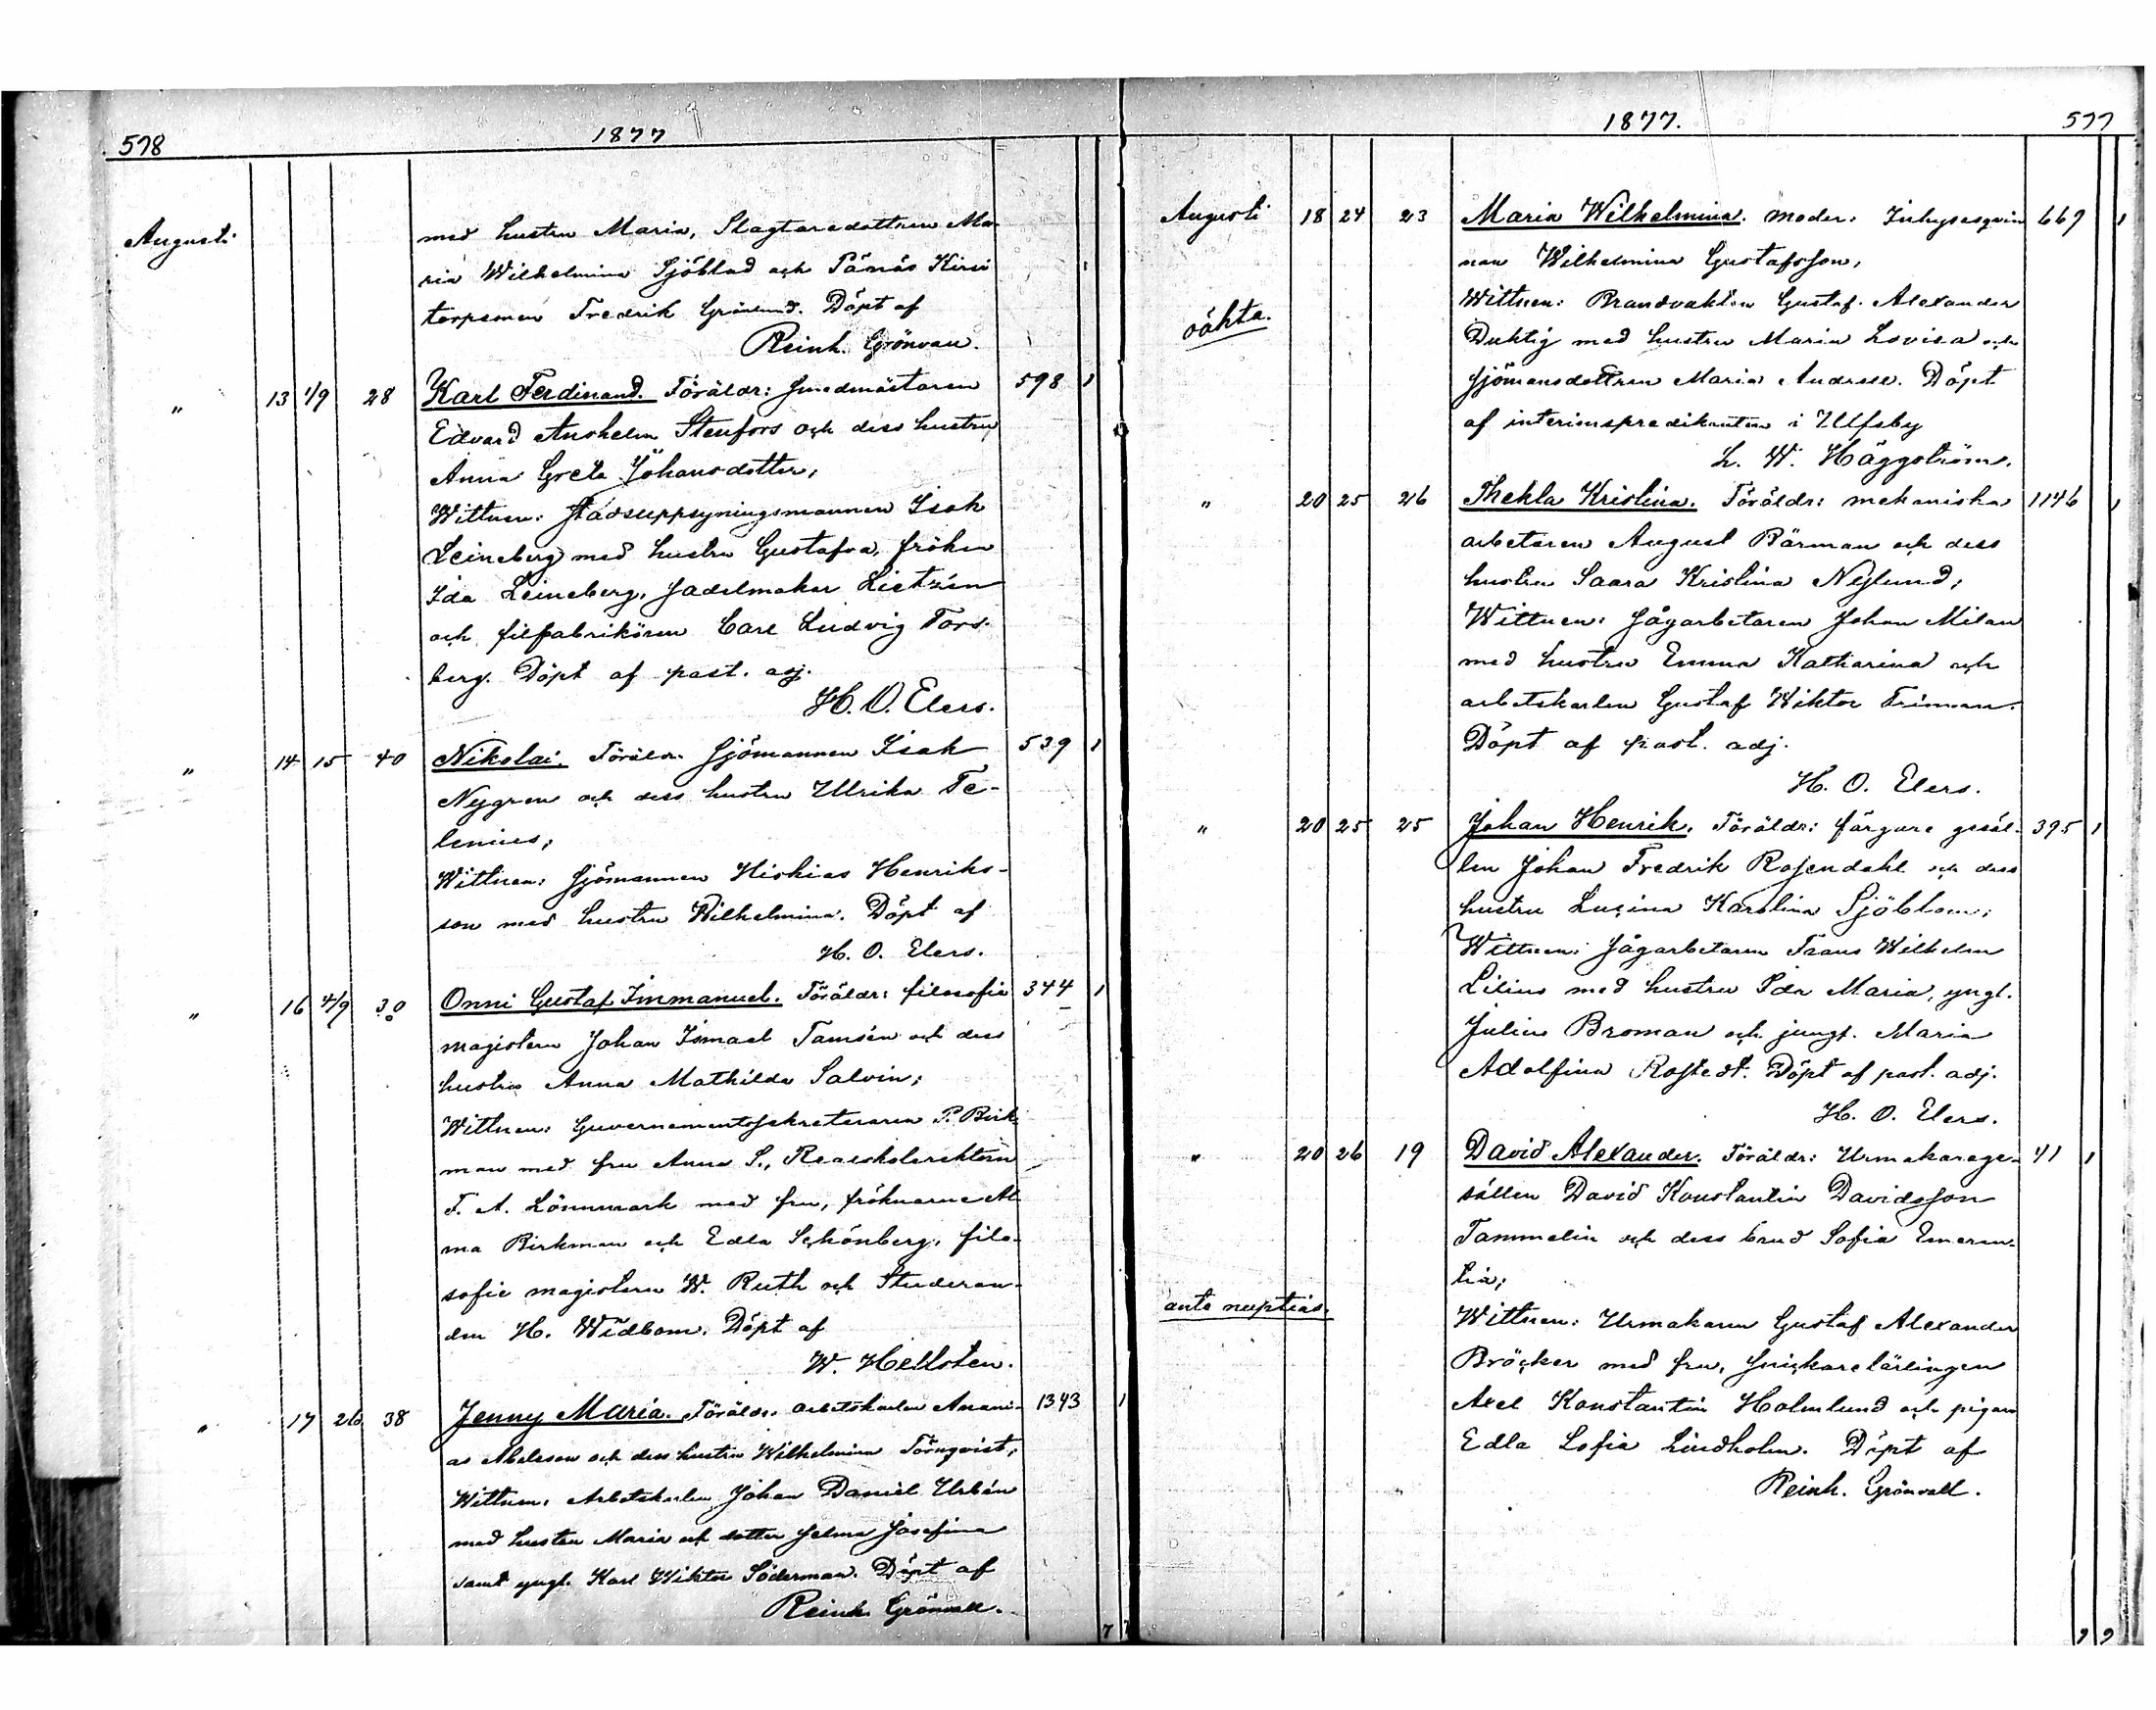 578
1877
Augusti
med hustru Maria, Slagtaredottren Ma-
ria Wilhelmina Sjöblad och Pänäs Kiwi
torpsonen Fredrik Grönlund. Döpt af
Reinh. Grönvall.
" 13 1/9 28 Karl Ferdinand. Föräldr: Smedmästaren 598 1
Edvard Anshelm Stenfors och dess hustru
Anna Greta Johansdotter;
Wittnen: Stadsuppsyningsmannen Isak
Leineberg med hustru Gustafva, fröken
Ida Leineberg, Sadelmakar Lietzén
och filfabrikören Carl Ludvig Fors-
berg. Döpt af past. adj.
H. O. Elers.
" 14 15 40 Nikolai. Föräldr. Sjömannen Isak 539 1
Nygren och dess hustru Ulrika Te-
lenius;
Wittnen: Sjömannen Hiskias Henriks-
son med hustru Wilhelmina. Döpt af
H. O. Elers.
" 16 4/9 30 Onni Gustaf Immanuel. Föräldr: filosofie 344 1
magistern Johan Ismael Tamsén och dess
hustru Anna Mathilda Salvin;
Wittnen: Guvernementssekreteraren P. Birk-
man med fru Anna S., Realskolerektorn
F. A. Lönnmark med fru, fröknarne Al-
ma Birkman och Edla Schönberg, filo-
sofie magistern W. Ruth och Studeran-
den H. Widbom. Döpt af
W. Hellsten.
" 17 26 38 Jenny Maria. Föräldr. arbetskarlen Anani- 1343 1
as Abelsson och dess hustru Wilhelmina Törnqvist;
Wittnen: Arbetskarlen Johan Daniel Urbén
med hustru Maria och dotter Selma Josefina
samt yngl. Karl Wiktor Söderman. Döpt af
Reinh. Grönvall.
7
1877.
577
Augusti 18 24 23 Maria Wilhelmina. Moder: Inhysesqvin- 669 1
nan Wilhelmina Gustafsson,
oäkta.
Wittnen: Brandvakten Gustaf Alexander
Duktig med hustru Maria Lovisa och
Sjömansdottren Maria Andrsse. Döpt
af interimspredikanten i Ulfsby
L. W. Häggström.
" 20 25 26 Thekla Kristina. Föräldr: mekaniska 1146 1
arbetaren August Bärman och dess
hustru Saara Kristina Nylund;
Wittnen: Sågarbetaren Johan Milan
med hustru Emma Katharina och
arbetskarlen Gustaf Wiktor Friman.
Döpt af past. adj.
H. O. Elers.
" 20 25 25 Johan Henrik. Föräldr: färgare gesäl- 395 1
len Johan Fredrik Rosendahl och dess
hustru Lucina Karolina Sjöblom;
Wittnen: Sågarbetaren Frans Wilhelm
Lilius med hustru Ida Maria, yngl.
Julius Broman och jungf. Maria
Adolfina Rostedt. Döpt af past. adj.
H. O. Elers.
" 20 26 19 David Alexander. Föräldr: Urmakarege- 41 1
sällen David Konstantin Davidsson
Tammelin och dess brud Sofia Emeren-
tia;
ante nuptias.
Wittnen: Urmakaren Gustaf Alexander
Bröcker med fru, Snickarelärlingen
Axel Konstantin Holmlund och pigan
Edla Sofia Lindholm. Döpt af
Reinh. Grönvall.
9 9